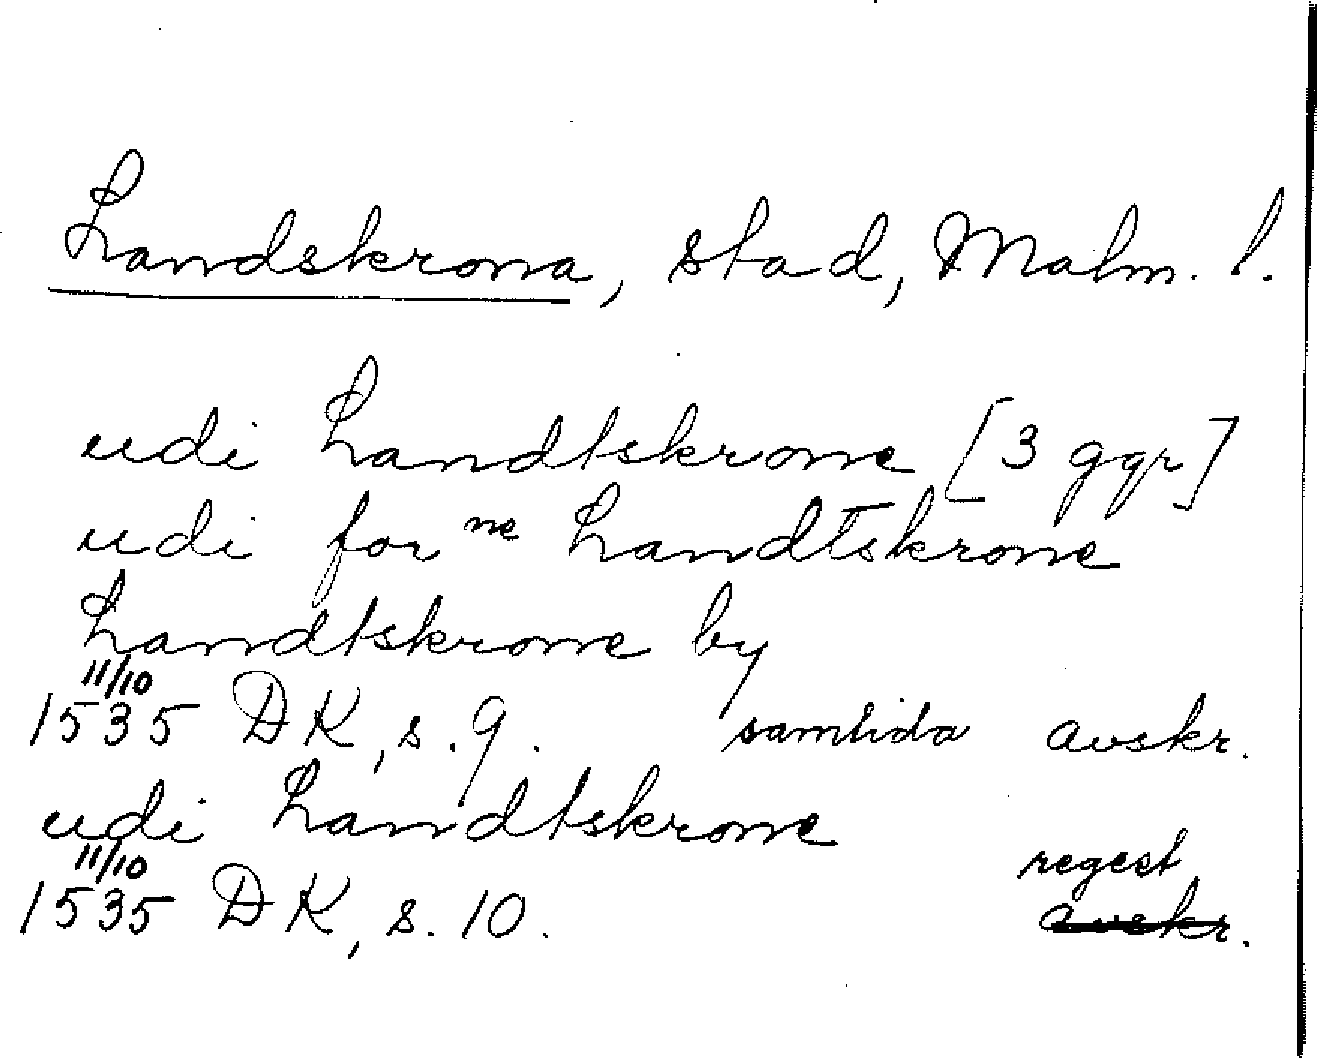 Landskrona, stad, Malm. l.
udi Landtskrone [3 ggr]
udi for ne Landtskrone
Landtskrone by
11/10
1535 DK, s. 9. samtida avskr.
udi Landtskrone
11/10 regest
1535 DK, s. 10. avskr.